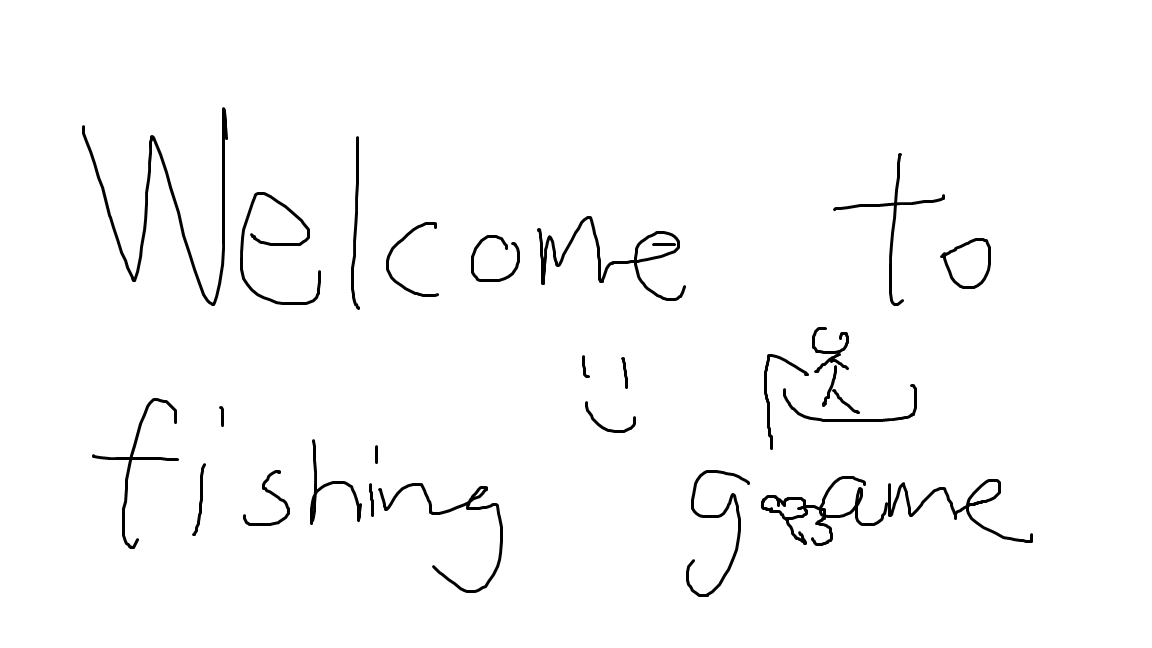 Welcome to
fishing game